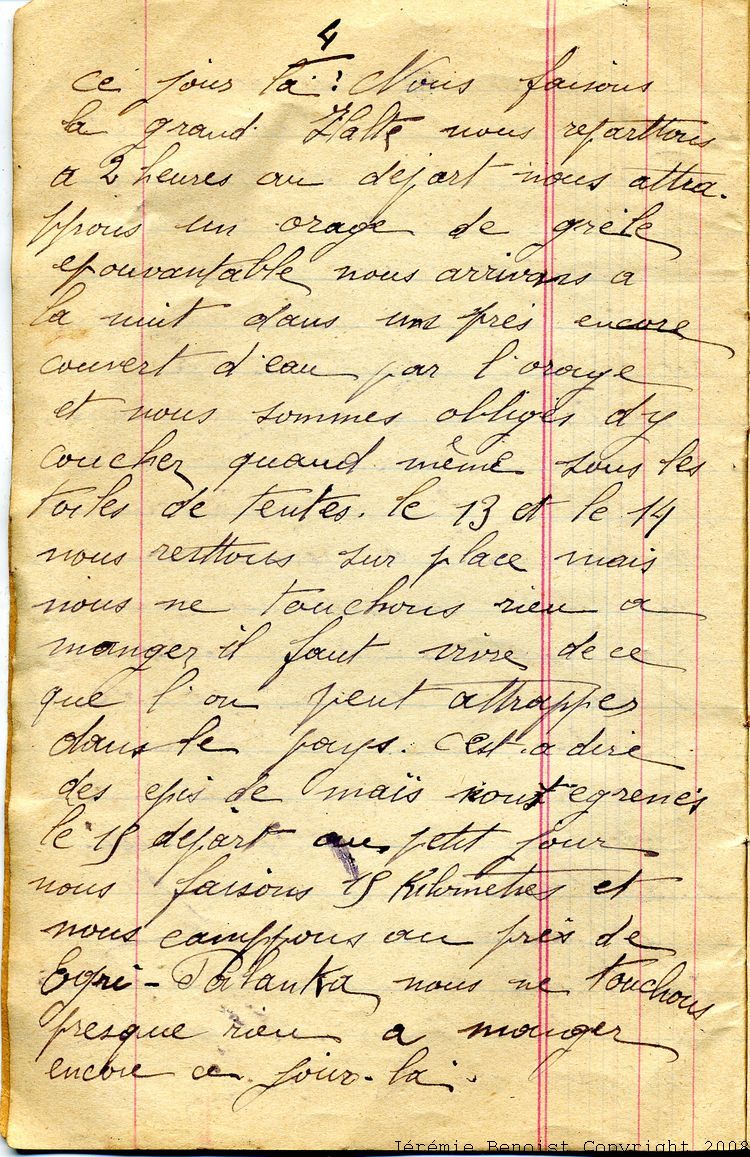 4
ce jour la. Nous faisons
la grand Halte nous reparttons
a 2 heures au depart nous attra-
ppons un orage de grele
epouvantable nous arrivons a
la nuit dans uns pres encore
couvert d'eau par l'orage
et nous sommes obliges d'y
coucher quand même sous les
toiles de tentes. le 13 et le 14
nous resttons sur place mais
nous ne touchons rien a
manger il faut vivre de ce
que l'on peut attrapper
dans le pays. c'est a dire
des epis de maïs egrenés
le 15 depart au petit jour
nous faisons 15 Kilometres et
nous camppons au près de
Egri-Palanka nous ne touchons
presque rien a manger
encore ce jour-la.
Jérémie Benoist Copyright 2008